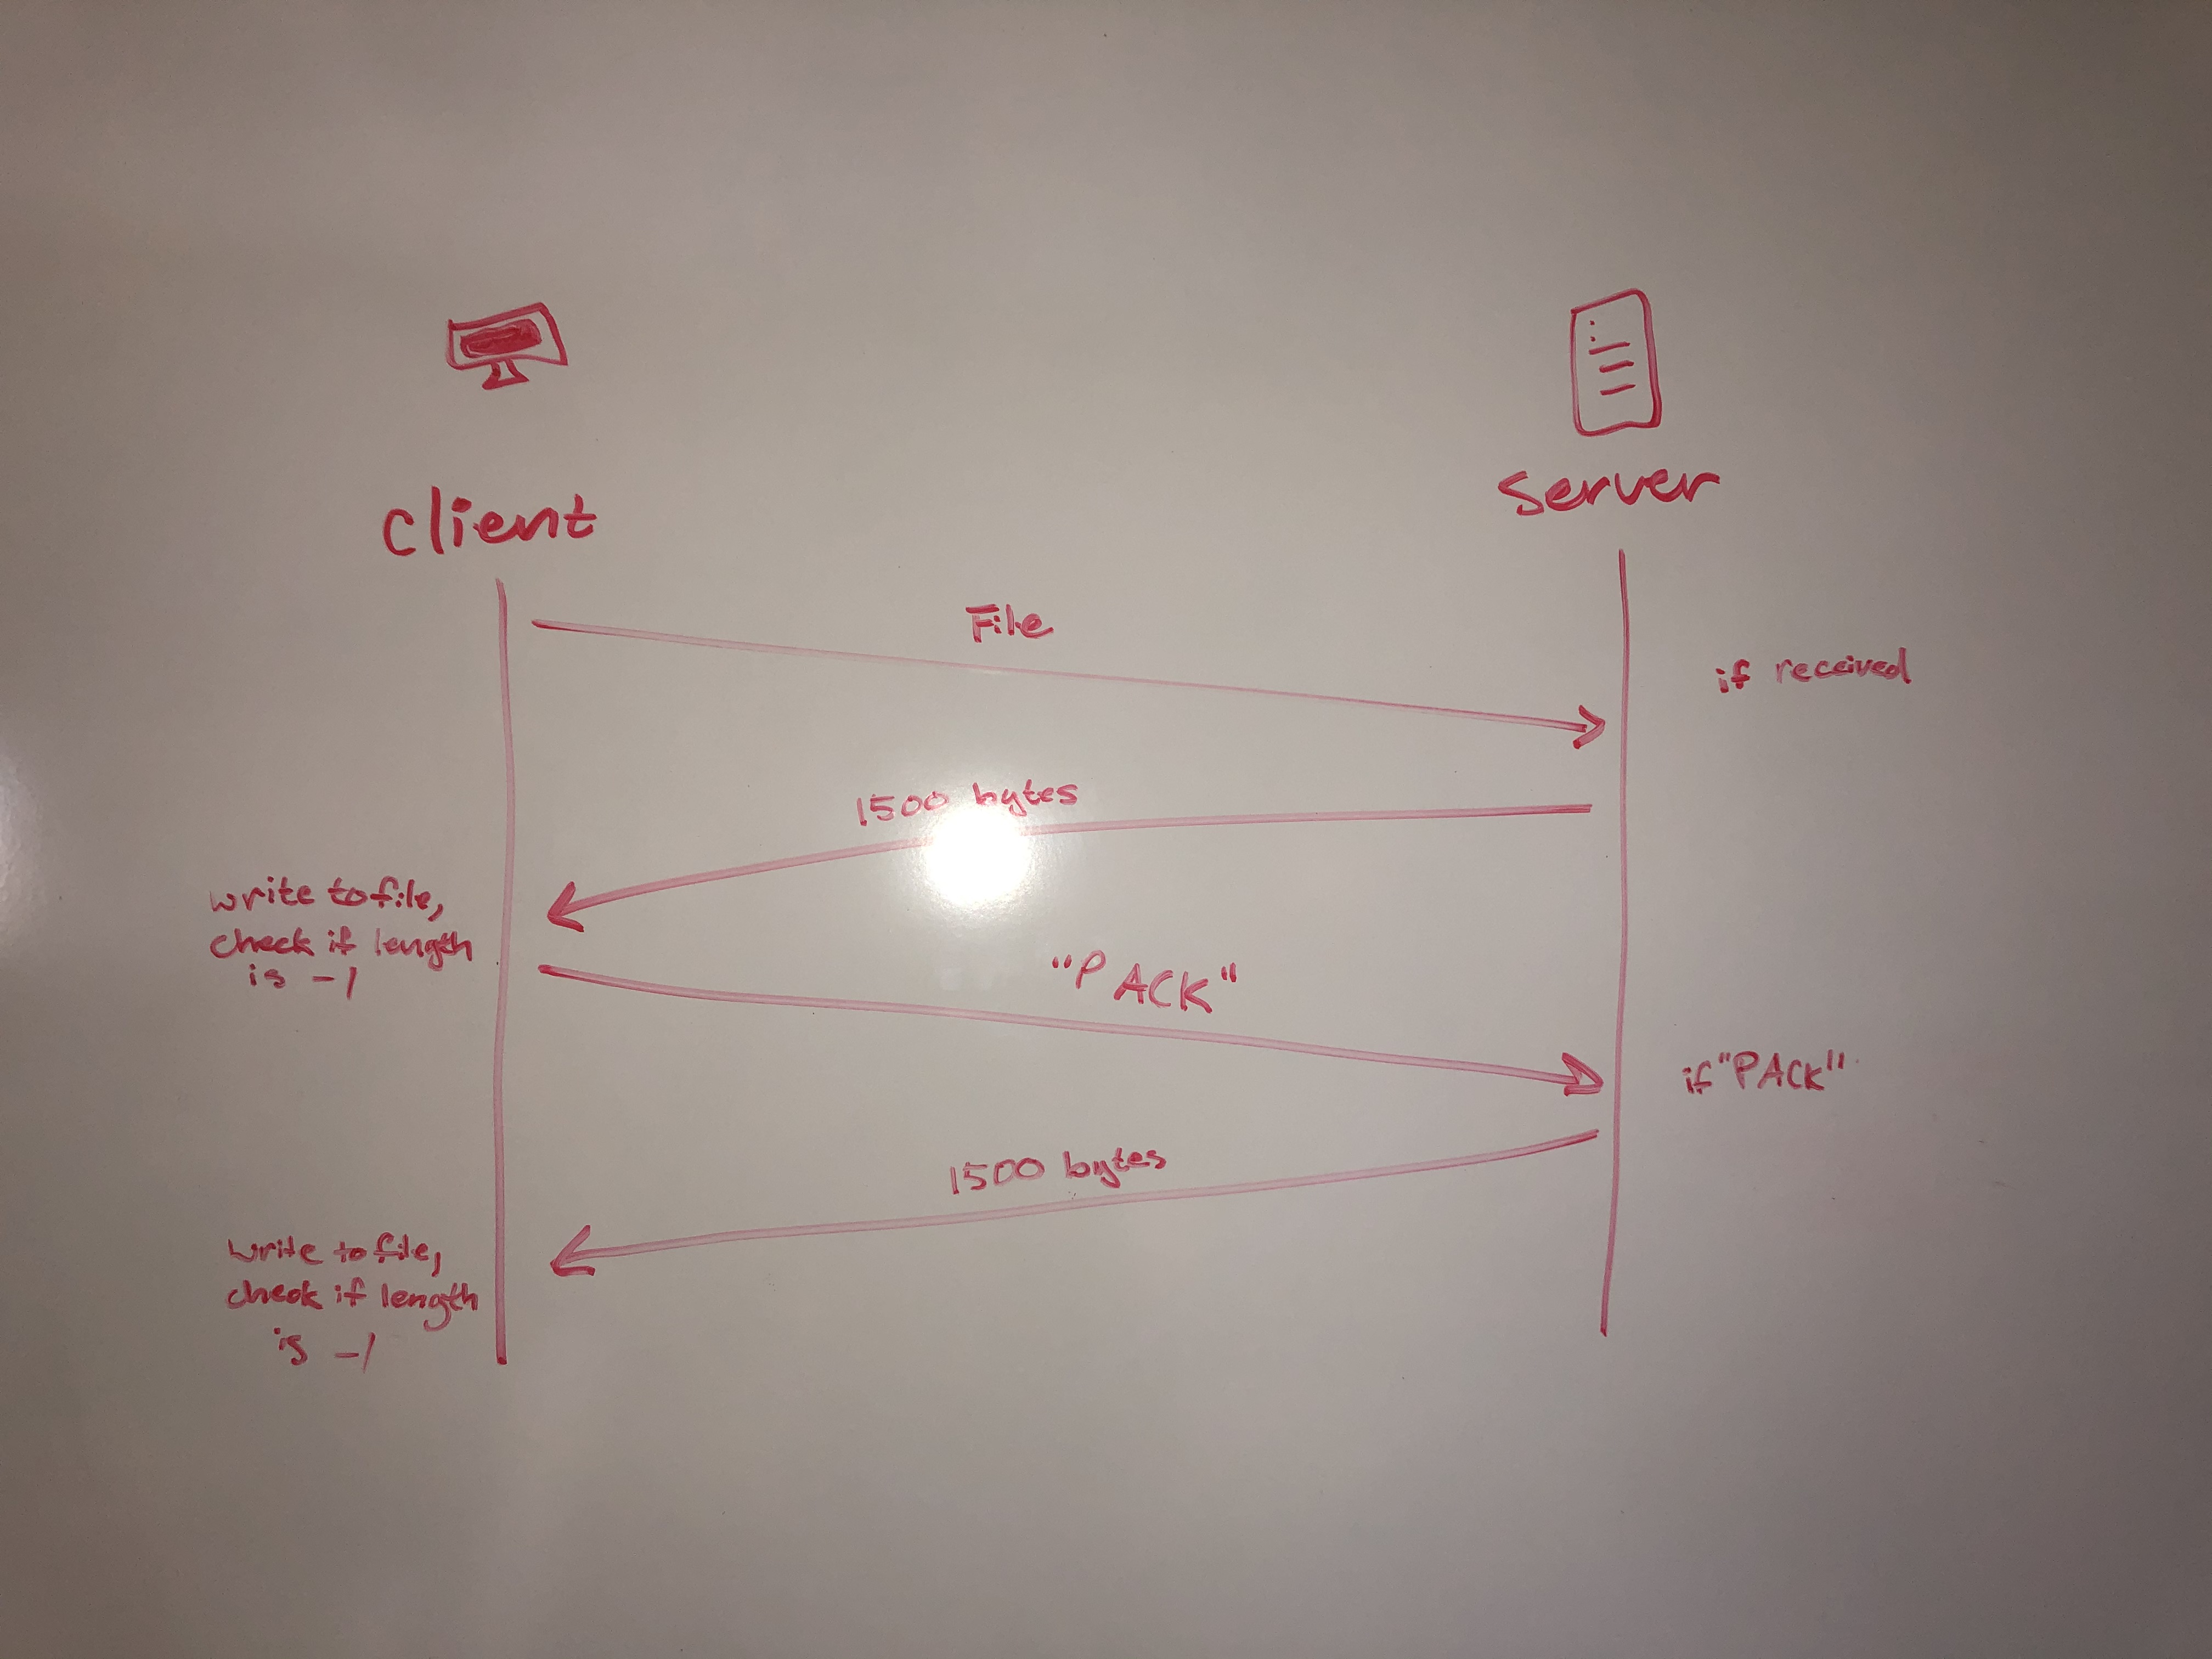 client
server
File
if received
1500 bytes
write to file,
check if length
is -1
"PACK"
if "PACK"
1500 bytes
write to file,
check if length
is -1